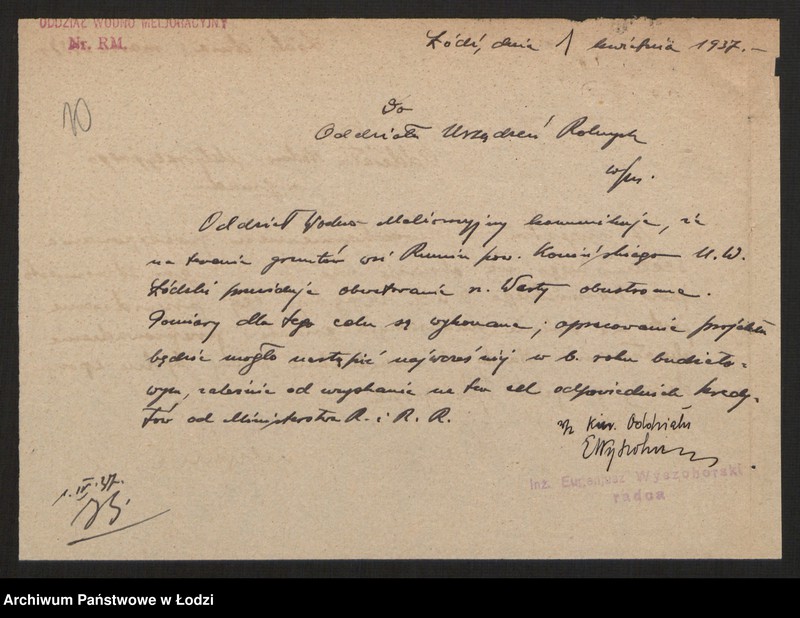 ODDZIAŁ WODNO MELIORACYJNY
Nr. RM.
Łódź, dnia 1 kwietnia 1937.-
10
Do
Oddziału Urządzeń Rolnych
w/m.
Oddział Wodno Melioracyjny komunikuje, że
na terenie gruntów wsi Rumin pow. Konińskiego U.W.
Łódzki przewiduje obwałowanie rz. Warty obustronne.
Pomiary dla tego celu są wykonane; opracowanie projektu
będzie mogło nastąpić najwcześniej w b. roku budżeto-
wym, zależnie od uzyskania na ten cel odpowiednich kredy-
tów od Ministerstwa R. i R. R.
Kier. Oddziału
EWyszobor
Inż. Eugeniusz Wyszoborski
radca
1.IV.37.